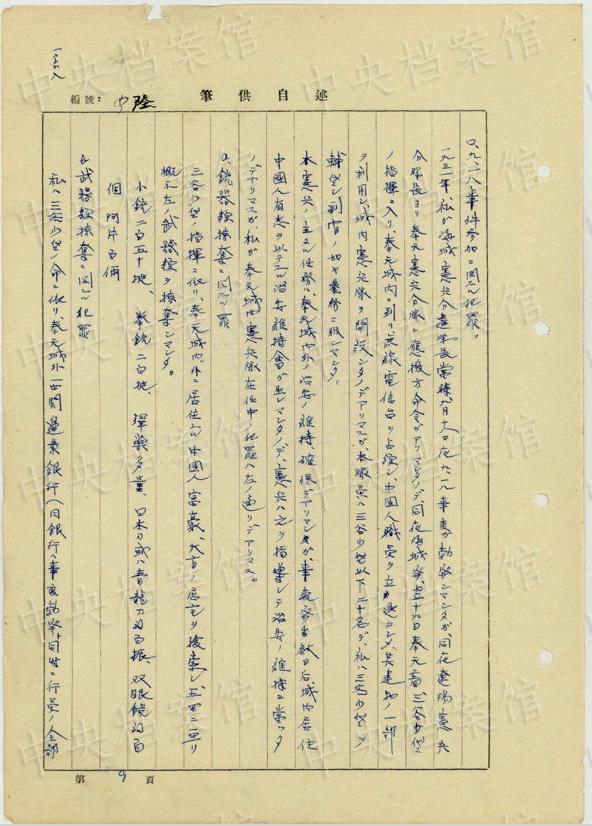 編號: 陸
筆供自述
口、九一八事件参加ニ関スル犯罪。
一九三一年、私ガ海城憲兵分遣所長當時九月十八日夜九一八事変ガ勃発シマシタガ、同夜遼陽憲兵
分隊長ヨリ奉天憲兵分隊ニ應援方命令ガアリマシタノデ同夜海城発、翌十九日奉天着、三谷少佐
ノ指揮ニ入リ、奉天城内ニ到リ無線電信台ヲ占領シ、中国人職員ヲ立退カシメ、其建物ノ一部
ヲ利用シ、城内憲兵隊ヲ開設シタノデアリマスガ、本隊員ハ三谷少佐以下二十名デ、私ハ三谷少佐ヲ
輔佐シ到着ノ切ヤ業務ニ服シマシタ。
本憲兵ノ主タル任務ハ奉天城内外ノ治安ノ維持確保デアリマシタガ、事変発生数日后、城内居住
中国人有志ヲ以テスル治安維持會ガ生レマシタノデ、憲兵ハ之ヲ指導シテ治安ノ維持ニ當ッタ
ノデアリマスガ、私ガ奉天城内憲兵隊在任中ノ犯罪ハ左ノ通リデアリマス。
a、銃器類掠奪ニ関スル罪
三谷少佐ノ指揮ニ依リ、奉天城内、外ニ居住スル中国人富豪、大官ノ居宅ヲ捜索シ、五四二亘リ
概ネ左ノ武器類ヲ掠奪シマシタ。
小銃二百五十挺、拳銃二百挺、弾薬多量、日本刀或ハ青龍刀約百振、双眼鏡約百
個 阿片百兩
b、武器類掠奪ニ関スル犯罪
私ハ三谷少佐ノ命ニ依リ、奉天城外一西関邊業銀行(同銀行ハ事変勃発ト同時ニ行員ノ全部
第 9 頁
中央档案馆